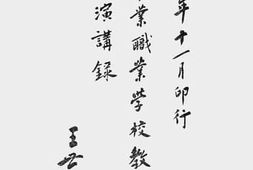 年十一月印行
業職業學校教
演講錄
王世